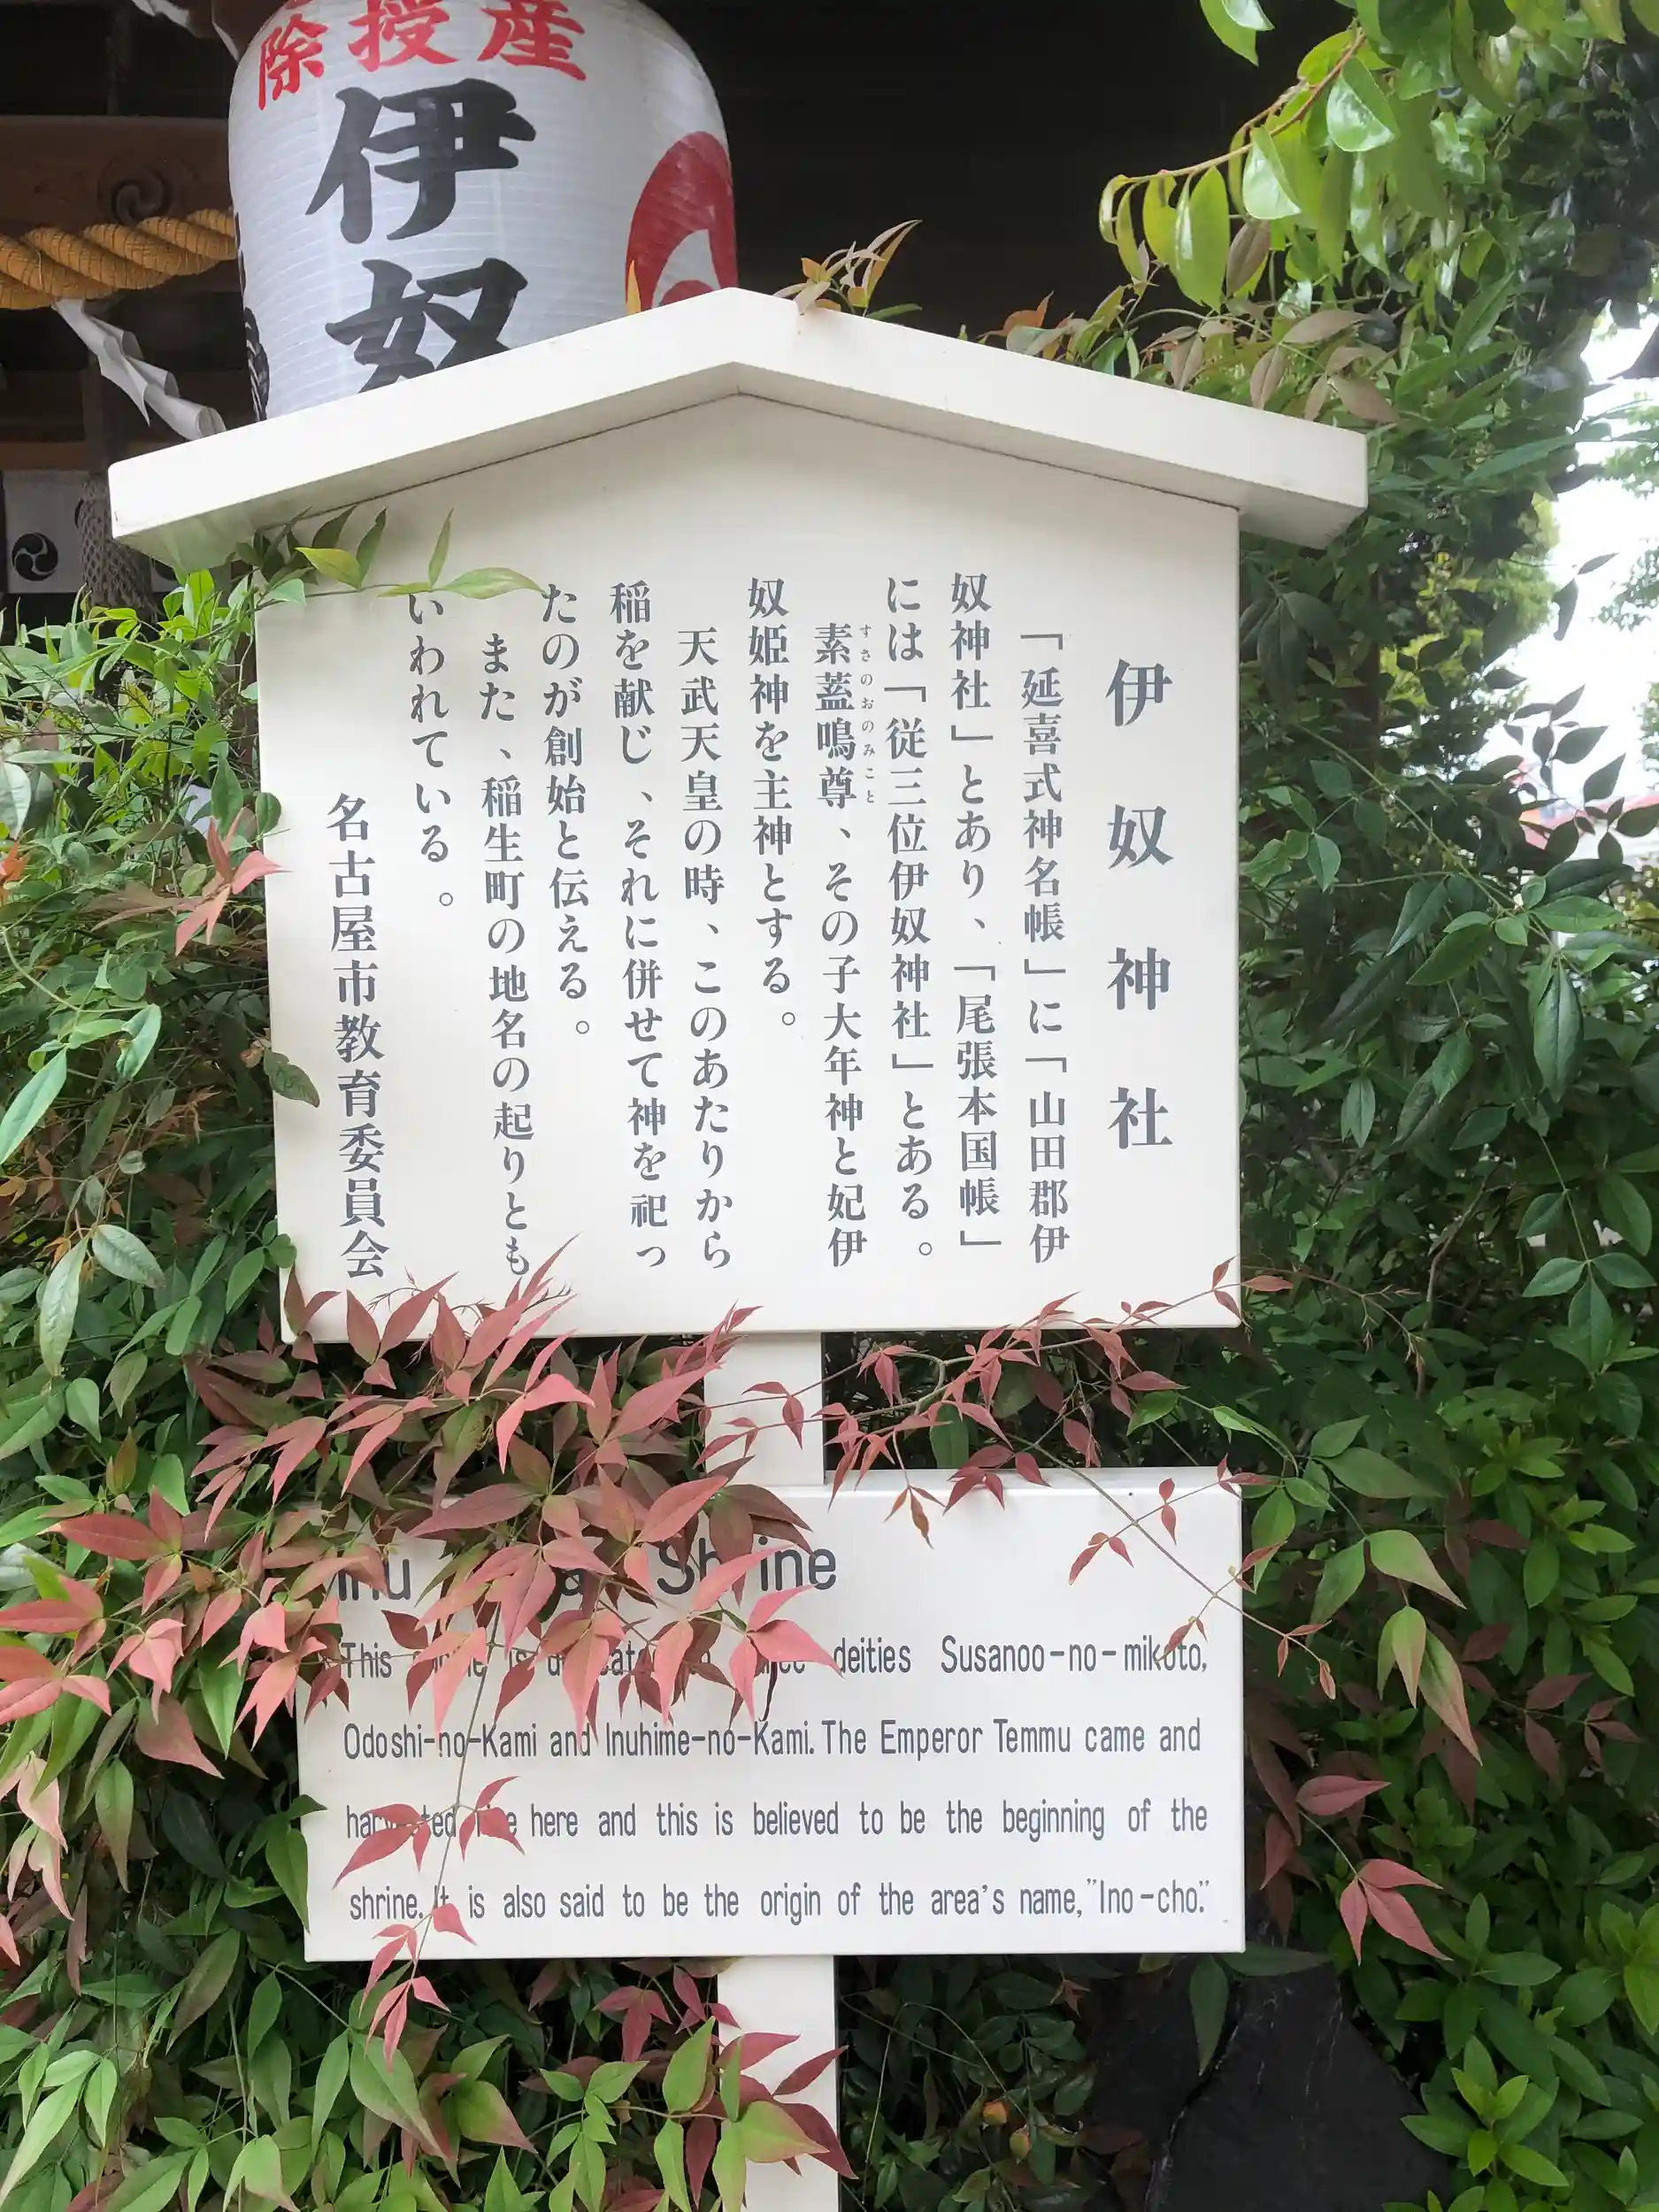 除授産
伊奴
伊奴神社
「延喜式神名帳」に「山田郡伊
奴神社」とあり、「尾張本国帳」
には「従三位伊奴神社」とある。
素蓋鳴尊、その子大年神と妃伊
すさのおのみこと
奴姫神を主神とする。
天武天皇の時、このあたりから
稲を献じ、それに併せて神を祀っ
たのが創始と伝える。
また、稲生町の地名の起りとも
いわれている。
名古屋市教育委員会
Shrine
This is deities Susanoo-no-mikoto,
Odoshi-no-Kami and Inuhime-no-Kami. The Emperor Temmu came and
harvested here and this is believed to be the beginning of the
shrine. It is also said to be the origin of the area's name, "Ino-cho."